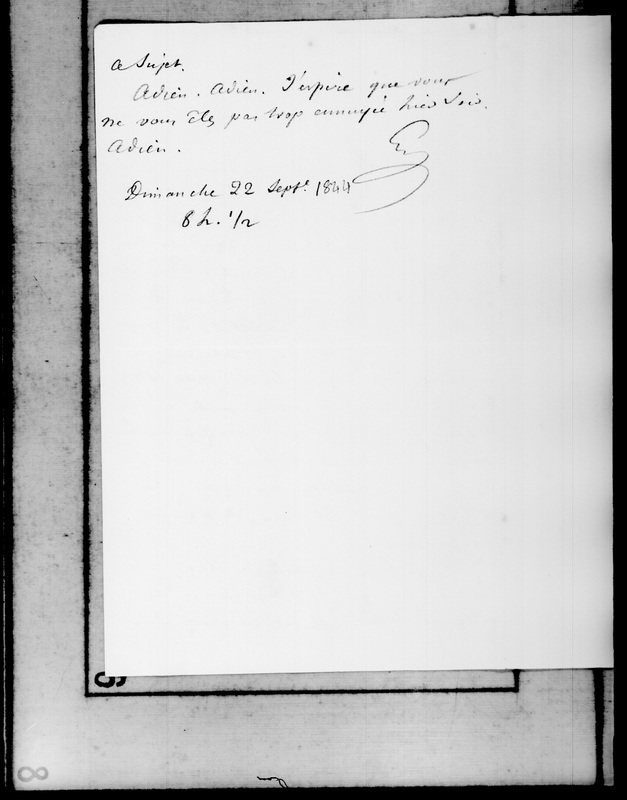 ce sujet.
Adieu. Adieu. J'espère que vous
ne vous êtes pas trop ennuyée hier soir.
Adieu.
Dimanche 22 Septe. 1844
8 h. 1/2